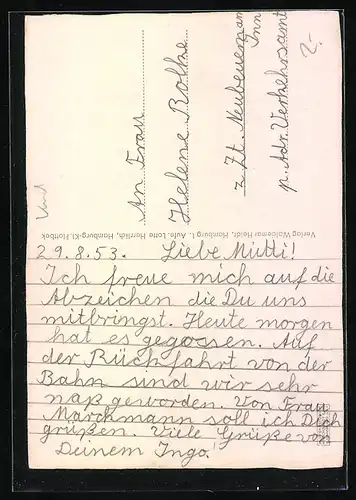 29.8.53. Liebe Mutti!
Ich freue mich auf die
Abzeichen die Du uns
mitbringst. Heute morgen
hat es gegossen. Auf
der Rückfahrt von der
Bahn sind wir sehr
naß geworden. Von Frau
Marchmann soll ich Dich
grüßen. Viele Grüße von
Deinem Ingo.
An Frau
Helene Rolke
z. Zt. Neubeuern am
Inn
p. Adr. Verkehrsamt
2.-
Verlag Waldemar Heldt, Hamburg 1. Aufn. Lotte Herrlich, Hamburg-Kl. Flottbek